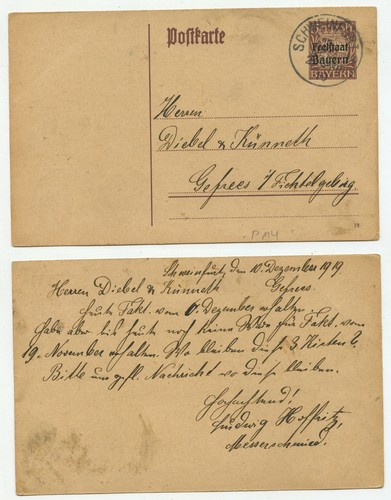 Postkarte
SCHWEINFURT
Freistaat
Bayern
BAYERN
Herren
Diebel & Künneth
Gefrees i/ Fichtelgebirg.
P A4
Schweinfurt, den 10. Dezember 1919.
Herren Diebel & Künneth Gefrees.
heute Fakt. vom 6. Dezember erhalten
habe aber bis heute noch keine Ware für Fakt. vom
19. November erhalten. Wo bleiben diese 3 Kisten
Bitte um gefl. Nachricht wo diese bleiben.
Hochachtend!
Ludwig Hoffritz,
Messerschmied.